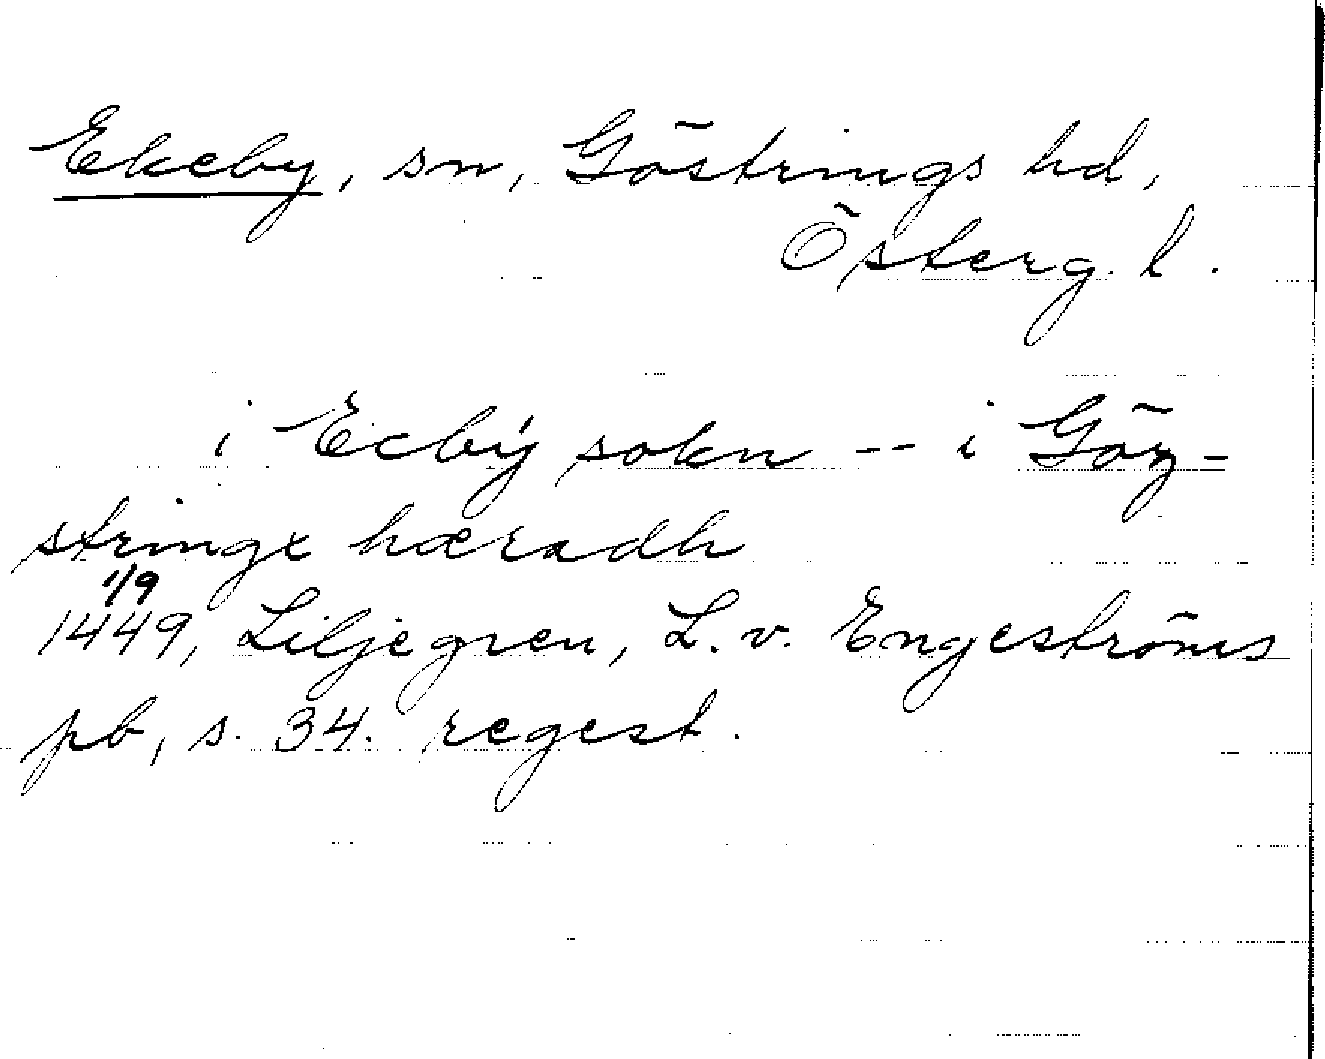 Ekeby, sn, Göstrings hd,
Österg. l.
i Ecbÿ sokn -- i Göz-
stringx hæradh
1/9
1449, Liljegren, L. v. Engeströms
pb, s. 34. regest.